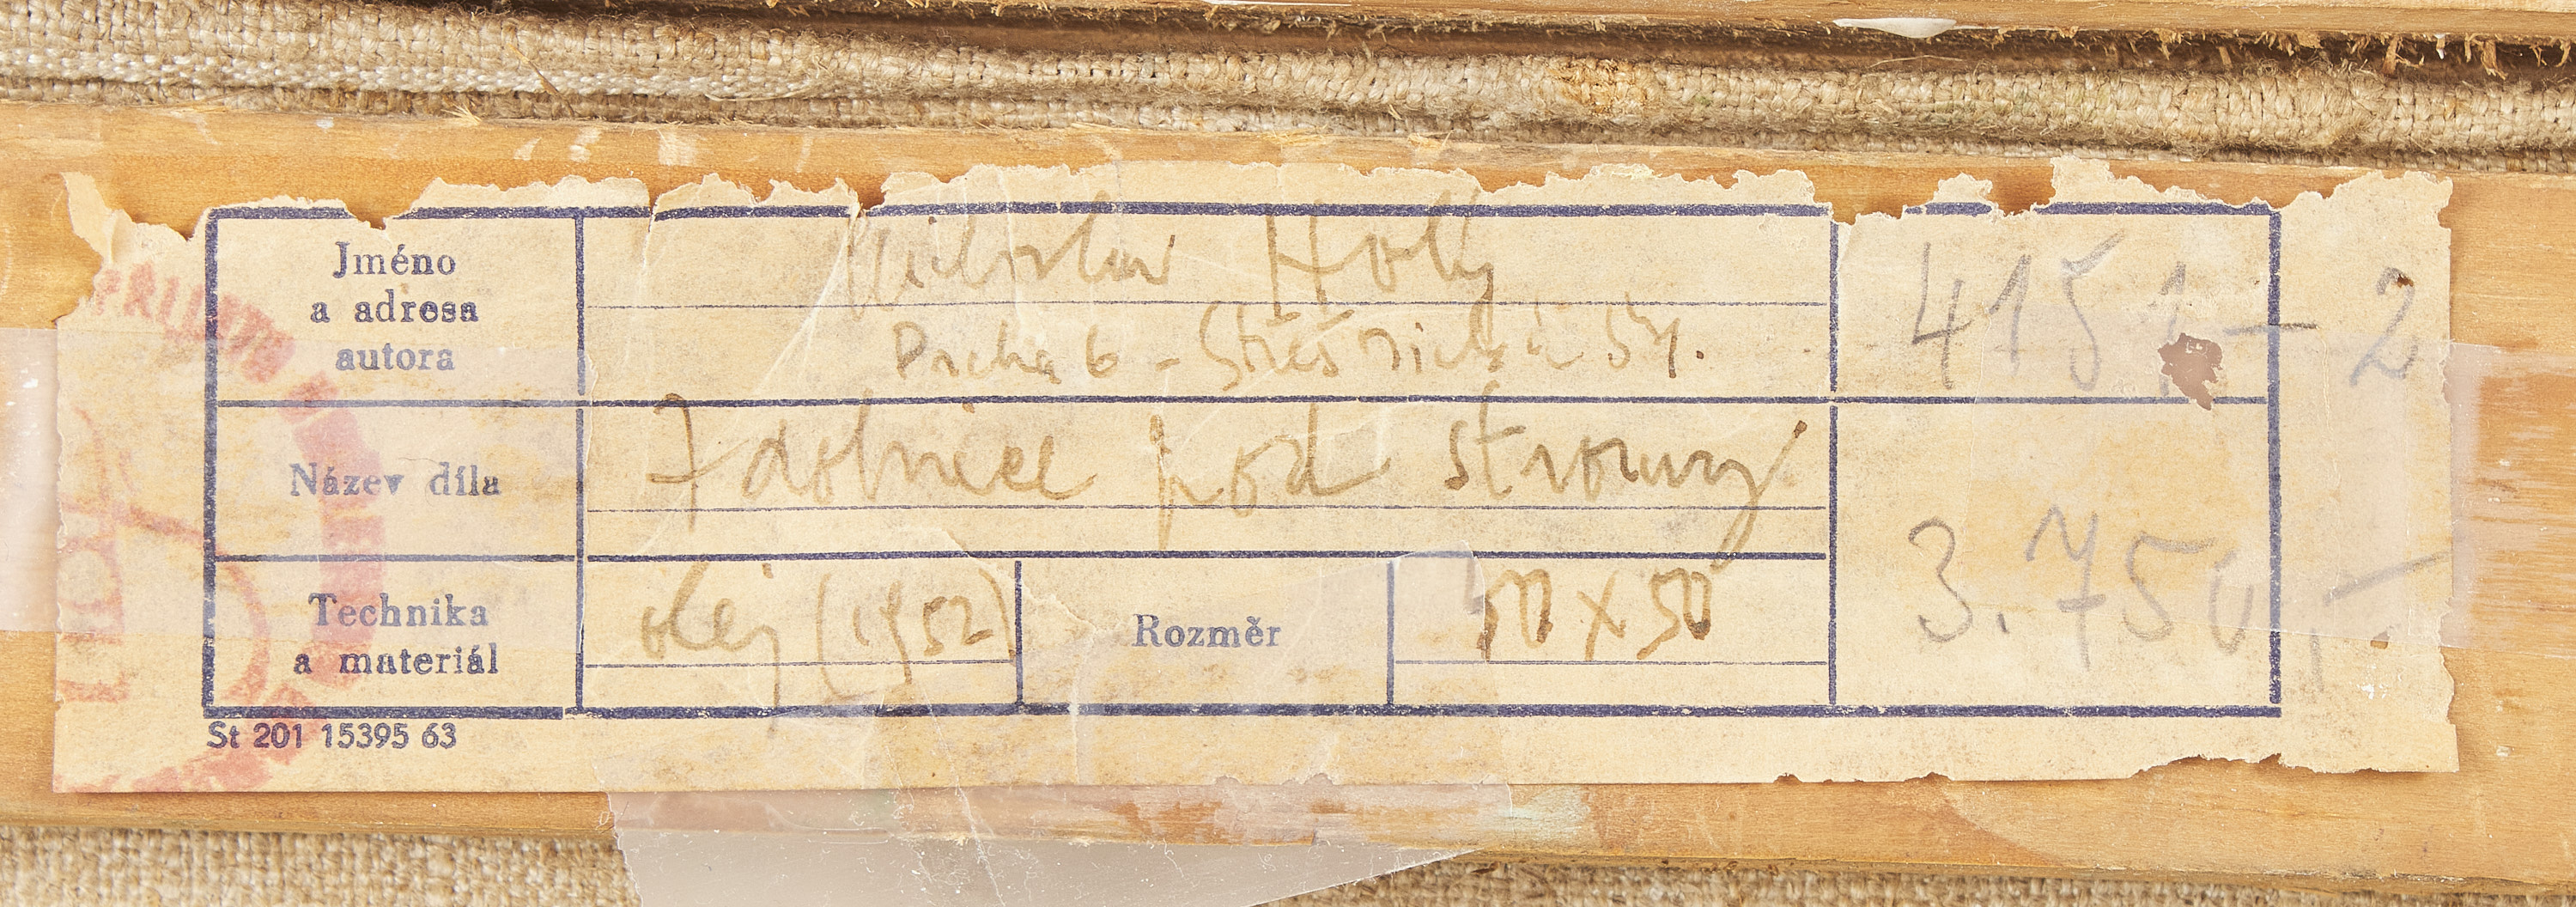 Jméno
a adresa
autora
Miloslav Holý
Praha 6 - Střešovická 54.
415 - 2
Název díla
Zdobnice pod stromy
3.750,-
Technika
a materiál
olej (1952)
Rozměr
50 x 50
St 201 15395 63
PŘIJATO